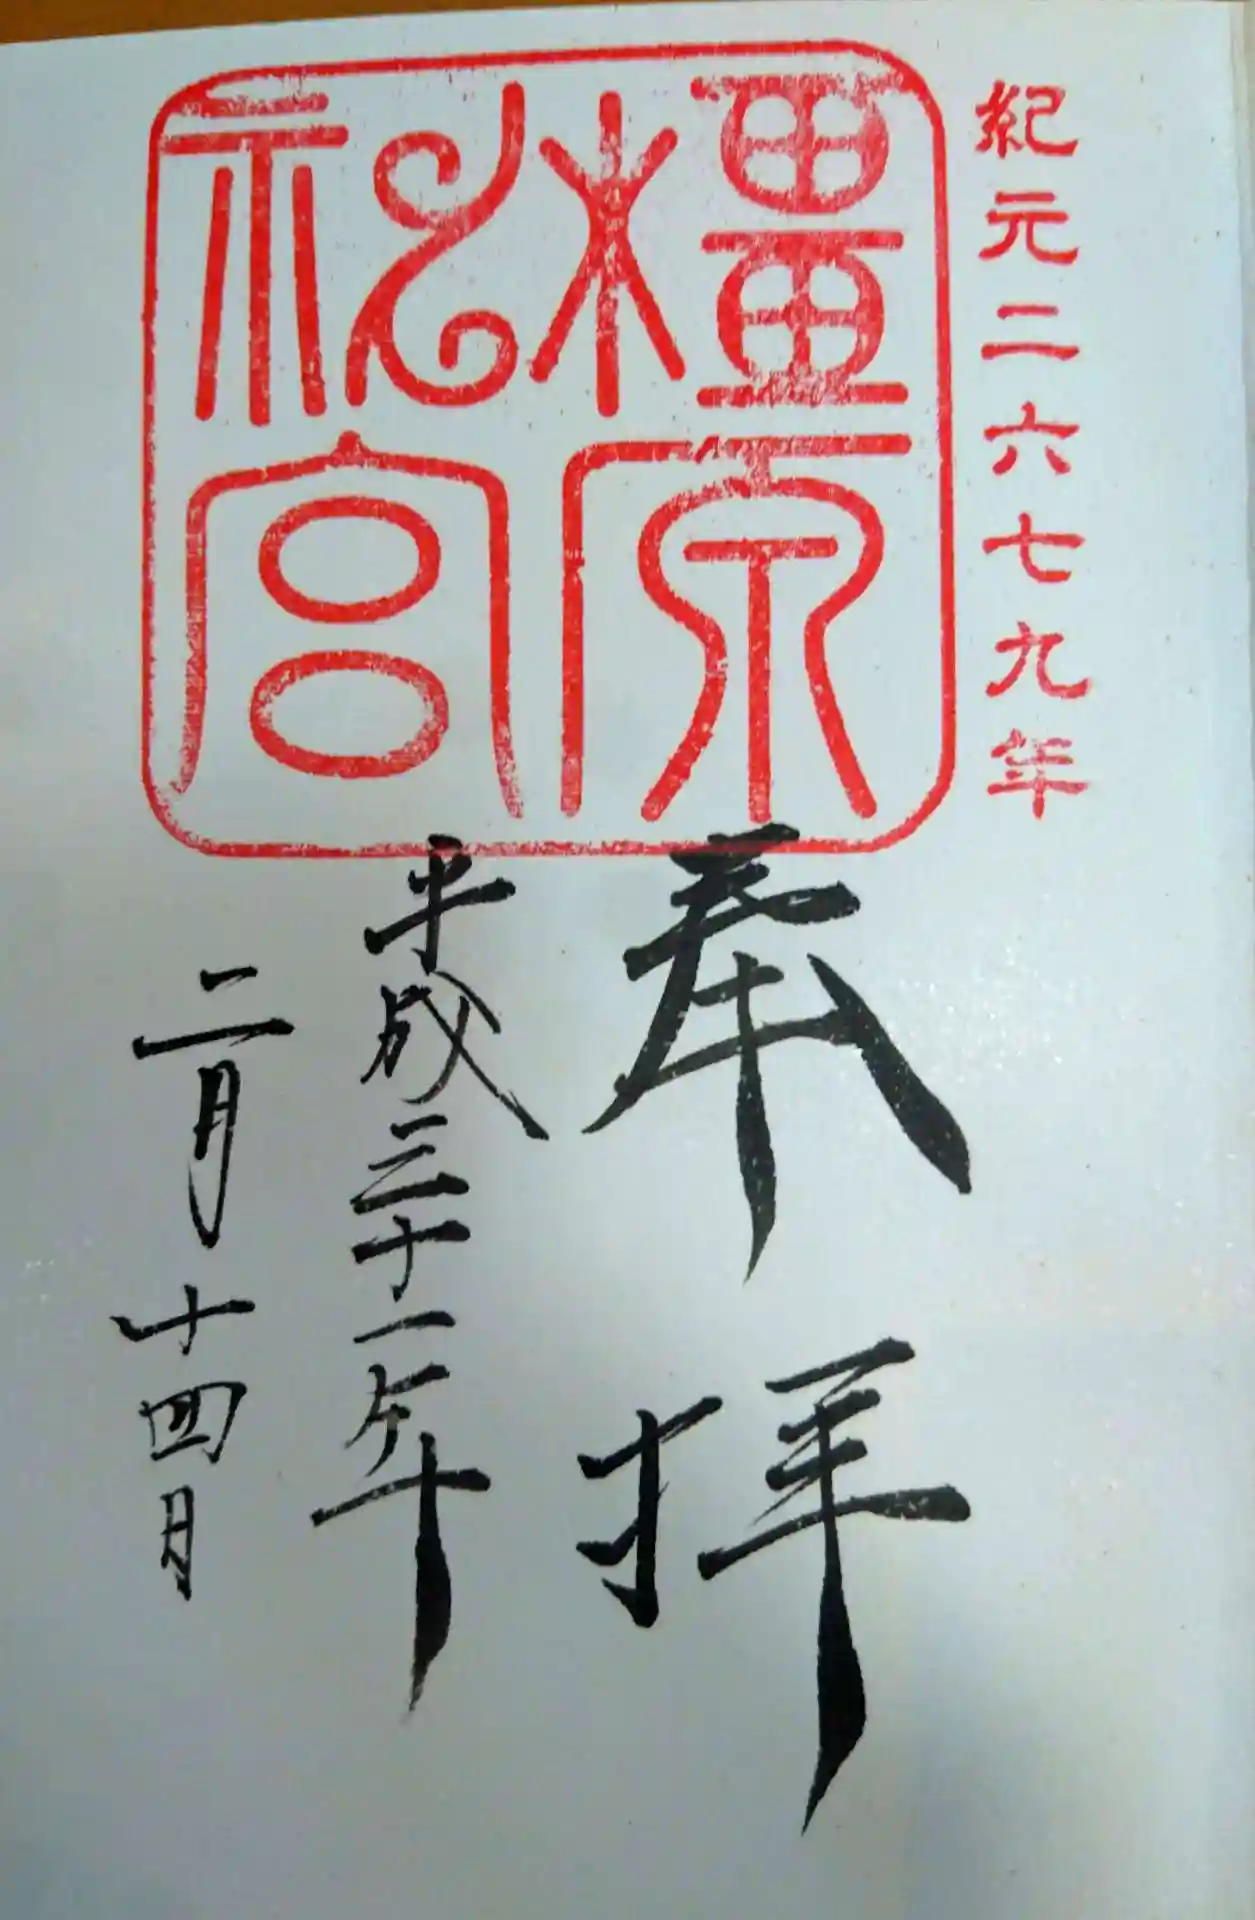 紀元二六七九年
橿原
神宮
奉拝
平成三十一年
二月十四日